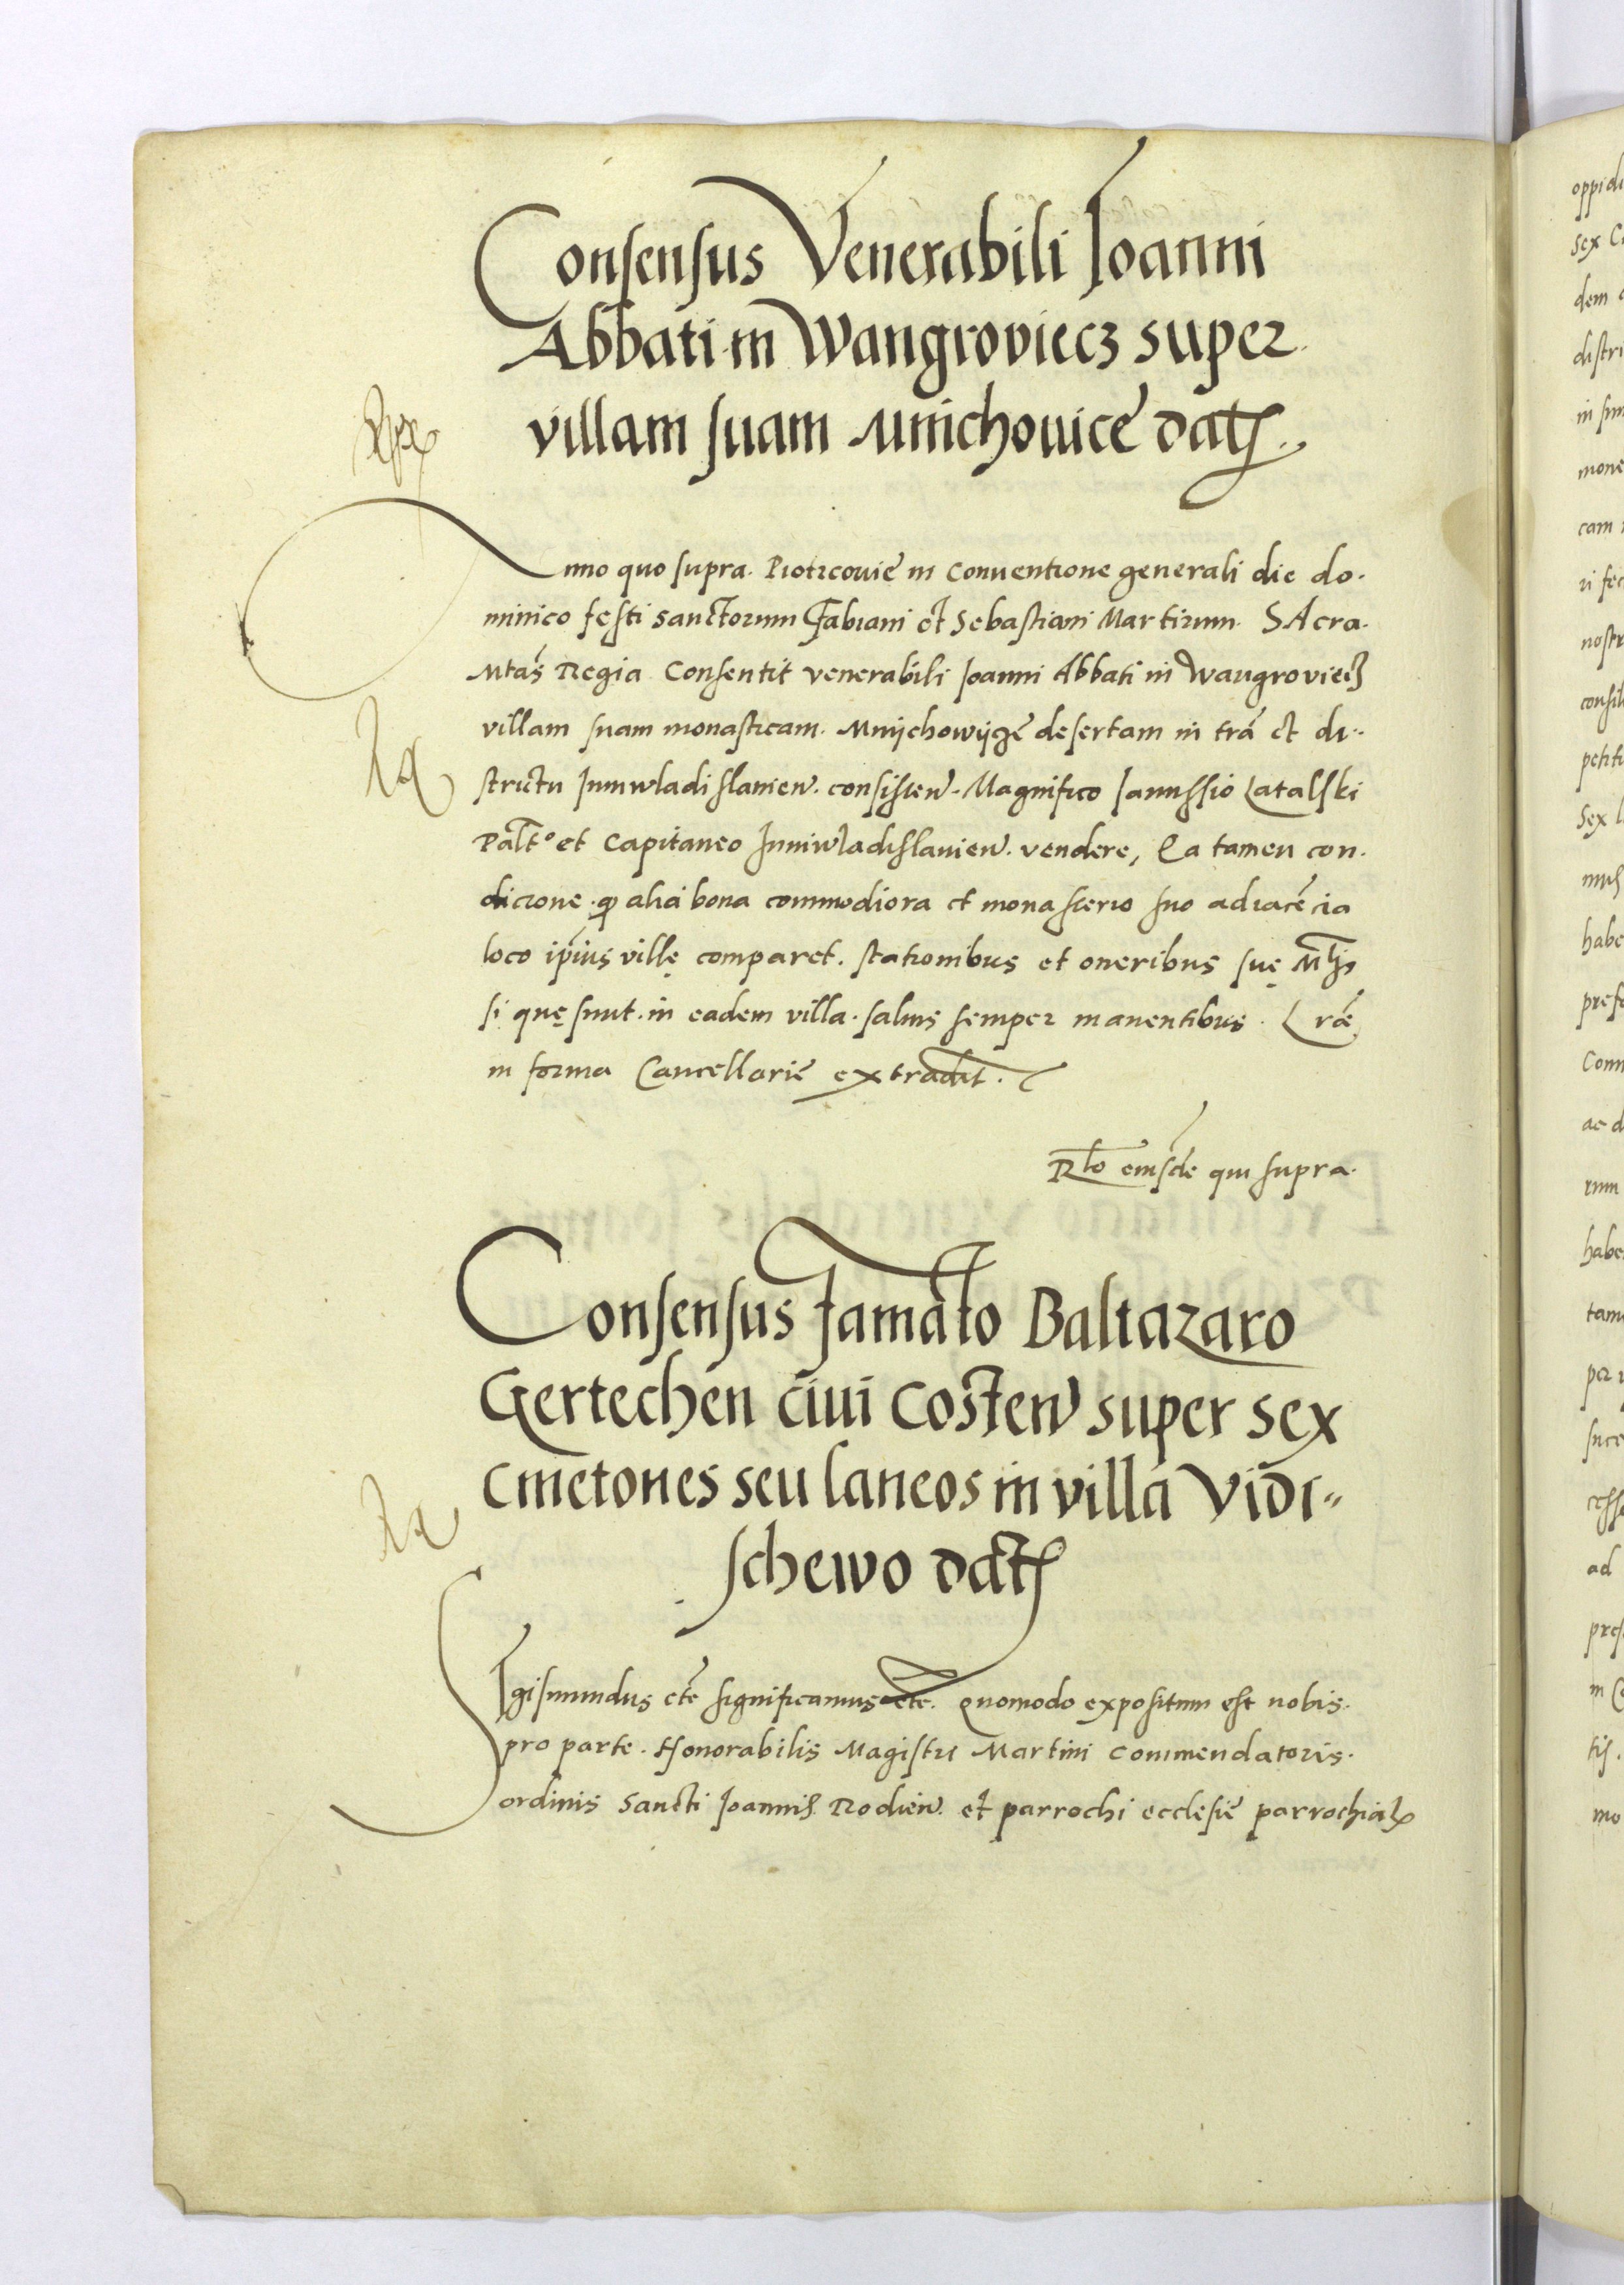 Consensus Venerabili Joanni
Abbati in Wangroviecz super
villam suam Mnichouice dat
Anno quo supra. Piotrcovie in Conventione generali die do-
minico festi sanctorum Fabiani et Sebastiani Martirum. SAcra
Mtas Regia Consentit venerabili Joanni Abbati in Wangroviecz
villam suam monasticam. Mnijchowijze desertam in tra et di-
strictu Juniwladislavien. consisten. Magnifico Janussio Latalski
Palto et Capitaneo Juniwladislavien. vendere, Ea tamen con
dicione. q alia bona commodiora et monasterio suo adiacecia
loco ipius ville comparet. stationibus et oneribus sue Mtis
si que sunt. in eadem villa. salvis semper manentibus. Lrae
in forma Cancellarie extradit.
Rlo eiusde qui supra.
Consensus famato Baltazaro
Gertechen civi Costen super sex
Cmetones seu laneos in villa Vidi-
schewo dat
Sigismundus etc significamus etc. Quomodo expositum est nobis.
pro parte. Honorabilis Magistri Martini Commendatoris.
ordinis Sancti Joannis Rodien. et parrochi ecclesie parrochial
oppid
sex
dem
distri
in
mone
cam
ri fec
nostr
consil
petiti
sex
habe
prefe
Com
ac d
rum
habe
tam
per
succ
ad
pres
in
mo